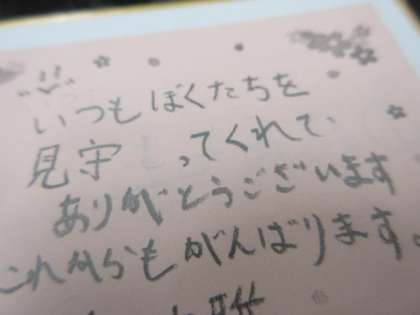 いつもぼくたちを
見守ってくれて
ありがとうございます
これからもがんばります。